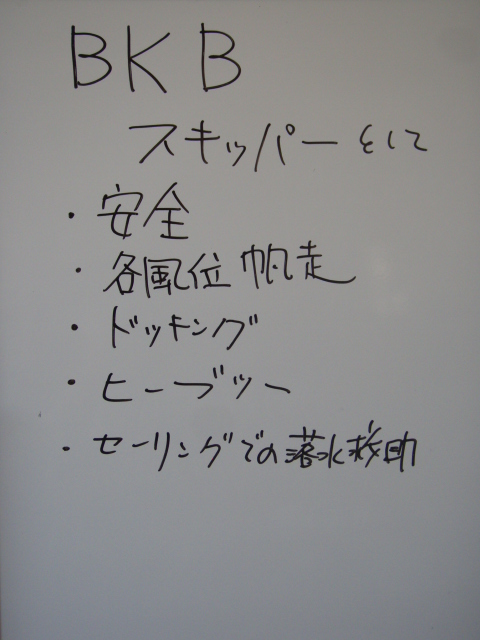 BKB
スキッパーとして
・安全
・各風位帆走
・ドッキング
・ヒーブツー
・セーリングでの落水救助